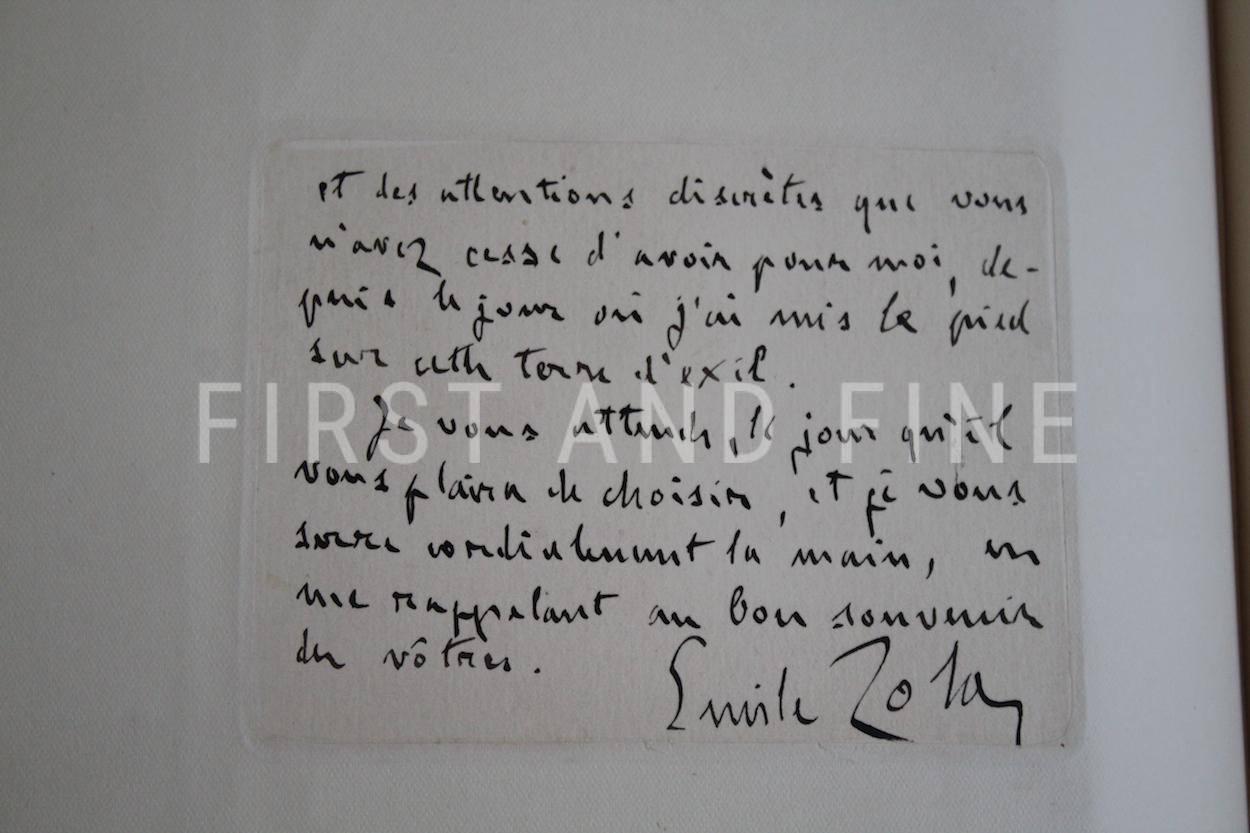 et des attentions discrètes que vous
n'avez cessé d'avoir pour moi, de-
puis le jour où j'ai mis le pied
sur cette terre d'exil.
FIRST AND FINE
Je vous attends, le jour qu'il
vous plaira de choisir, et je vous
serre cordialement la main, en
me rappelant au bon souvenir
des vôtres.
Emile Zola